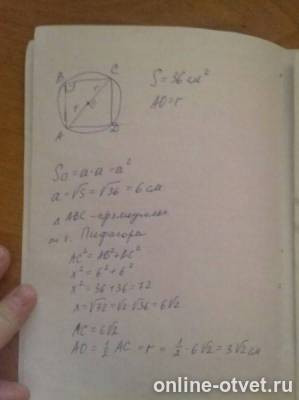 B C
r
r
O
A D
S = 36 см²
AO = r
Sа = a · a = a²
a = √S = √36 = 6 см
△ ABC – прямоугольн
по т. Пифагора
AC² = AB² + BC²
x² = 6² + 6²
x² = 36 + 36 = 72
x = √72 = √2 · √36 = 6√2
AC = 6√2
AO = 1/2 AC = r = 1/2 · 6√2 = 3√2 см
online-otvet.ru